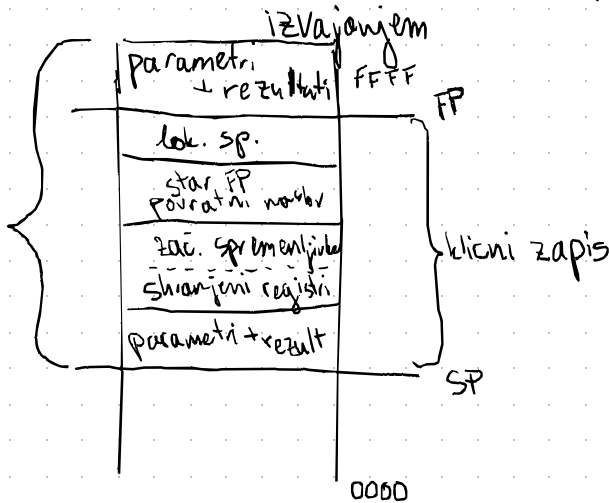 izvajanjem
parametri
+ rezultati
FFFF
FP
lok. sp.
star FP
povratni naslov
zač. spremenljivke
shranjeni registri
klicni zapis
parametri + rezult
SP
0000